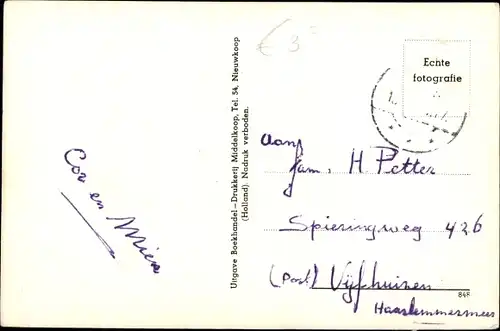 € 3
Echte
fotografie
Uitgave Boekhandel-Drukkerij Middelkoop, Tel. 54, Nieuwkoop
(Holland). Nadruk verboden.
Cor en Mien
Aan
fam. H Petter
Spieringweg 426
(post) Vijfhuizen
Haarlemmermeer
848